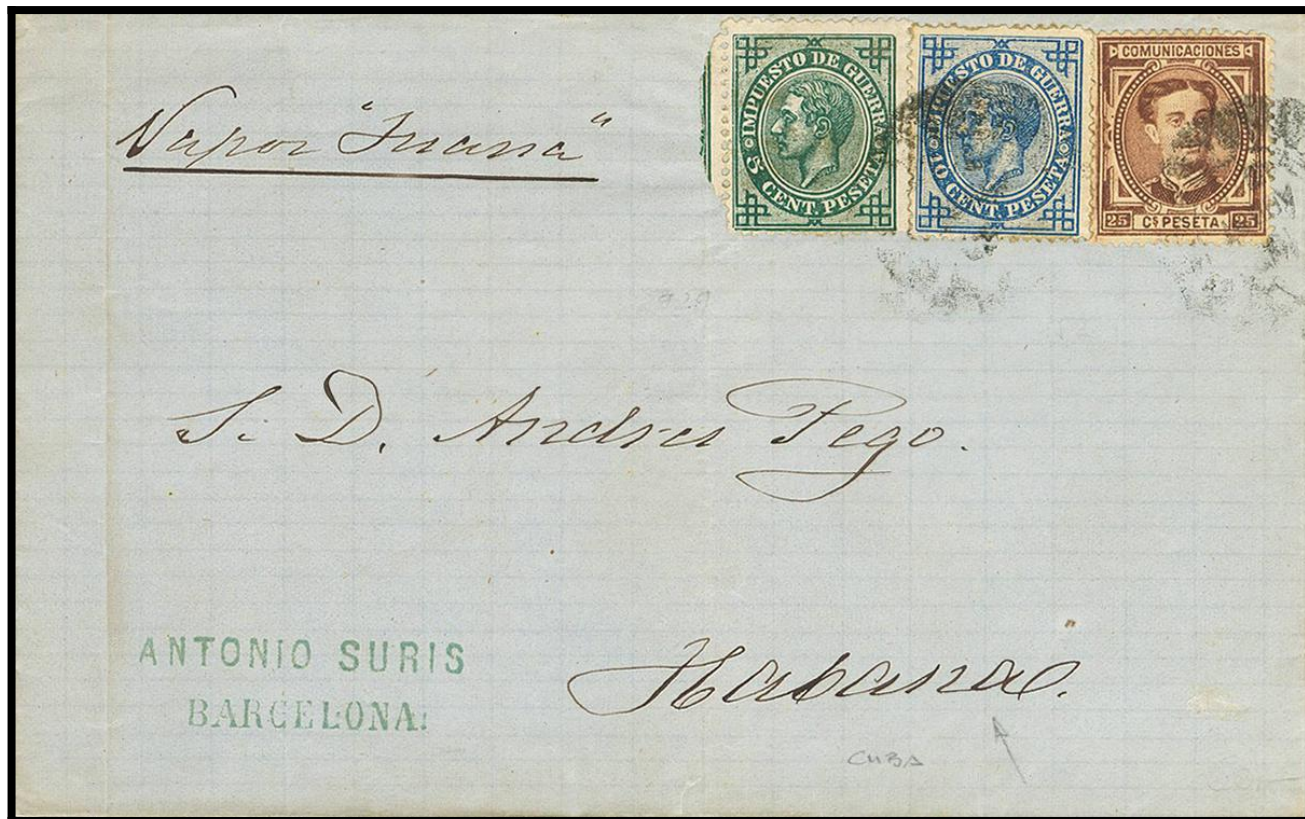 Vapor "Juana"
IMPUESTO DE GUERRA
5 CENT PESETA
IMPUESTO DE GUERRA
10 CENT PESETA
COMUNICACIONES
25 Cs PESETA 25
S. D. Andres Pego.
ANTONIO SURIS
BARCELONA.
Habana.
CUBA